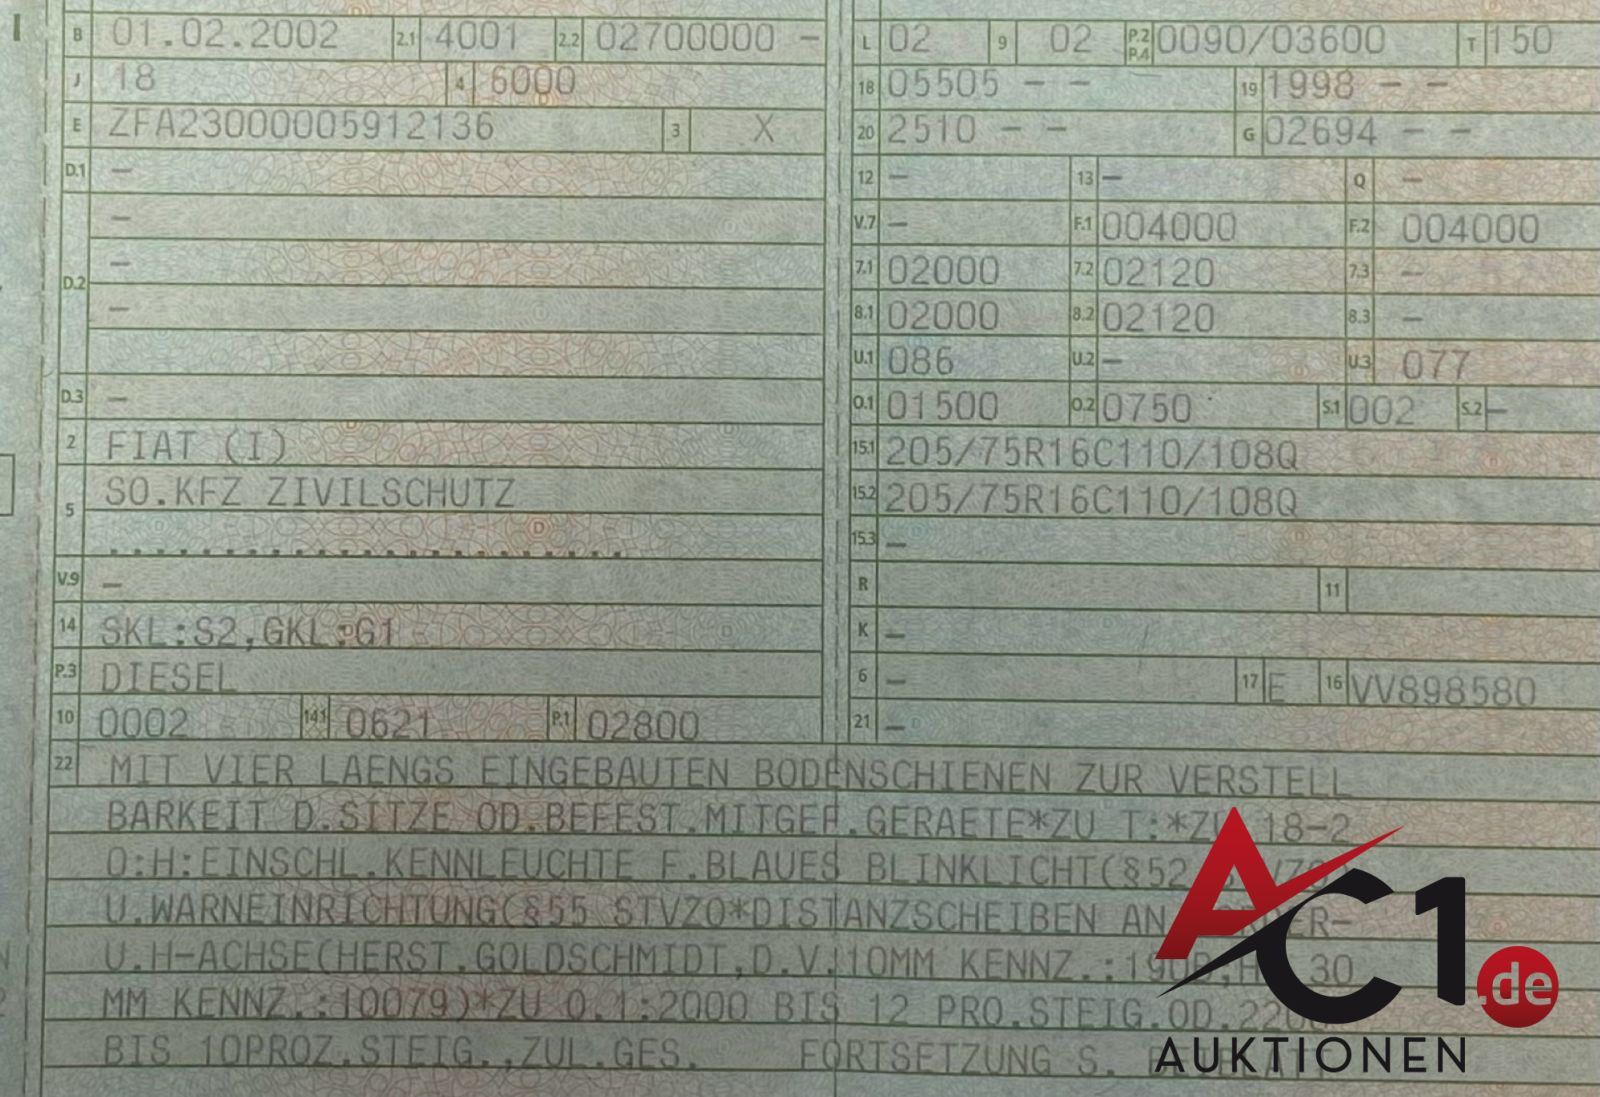 B 01.02.2002 2.1 4001 2.2 02700000 –
J 18 4 6000
E ZFA23000005912136 3 X
D.1 –
–
D.2 –
–
D.3 –
2 FIAT (I)
5 SO.KFZ ZIVILSCHUTZ
V.9 –
14 SKL:S2,GKL:G1
P.3 DIESEL
10 0002 14.1 0621 P.1 02800
L 02 9 02 P.2 P.4 0090/03600 T 150
18 05505 – – 19 1998 – –
20 2510 – – G 02694 – –
12 – 13 – Q –
V.7 – F.1 004000 F.2 004000
7.1 02000 7.2 02120 7.3 –
8.1 02000 8.2 02120 8.3 –
U.1 086 U.2 – U.3 077
O.1 01500 O.2 0750 S.1 002 S.2 –
15.1 205/75R16C110/108Q
15.2 205/75R16C110/108Q
15.3 –
R 11
K –
6 – 17 E 16 VV898580
21 –
22 MIT VIER LAENGS EINGEBAUTEN BODENSCHIENEN ZUR VERSTELL
BARKEIT D.SITZE OD.BEFEST.MITGEF.GERAETE*ZU T:*ZU 18-2
0:H:EINSCHL.KENNLEUCHTE F.BLAUES BLINKLICHT(§52
U.WARNEINRICHTUNG(§55 STVZO*DISTANZSCHEIBEN AN
U.H-ACHSE(HERST.GOLDSCHMIDT,D.V.10MM KENNZ.: 30
MM KENNZ.:10079)*ZU O.1:2000 BIS 12 PRO.STEIG.OD.
BIS 10PROZ.STEIG.,ZUL.GES. FORTSETZUNG S.
AC1.de
AUKTIONEN